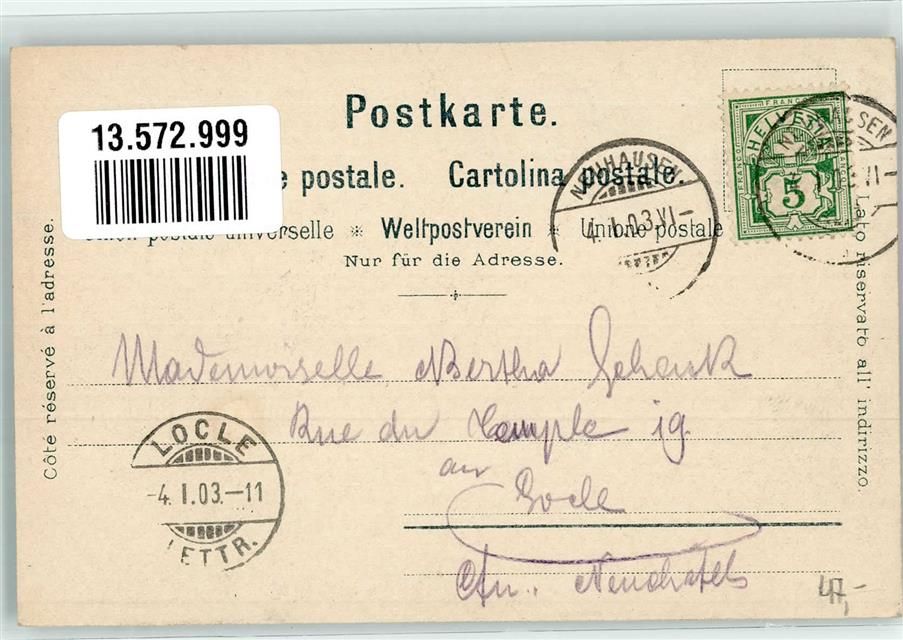 13.572.999
Postkarte.
e postale. Cartolina postale.
Union postale universelle * Weltpostverein * Unione postale
Nur für die Adresse.
Côté réservé à l'adresse.
Lato riservato all' indirizzo.
FRANCO
HELVETIA
FRANCO
5
NEUHAUSEN
4.I.03.VI-
NEUHAUSEN
VI-
Mademoiselle Bertha Schenk
Rue du Temple 19.
au
Locle
Ctn. Neuchatel
LOCLE
-4.I.03.-11
LETTR.
47,-